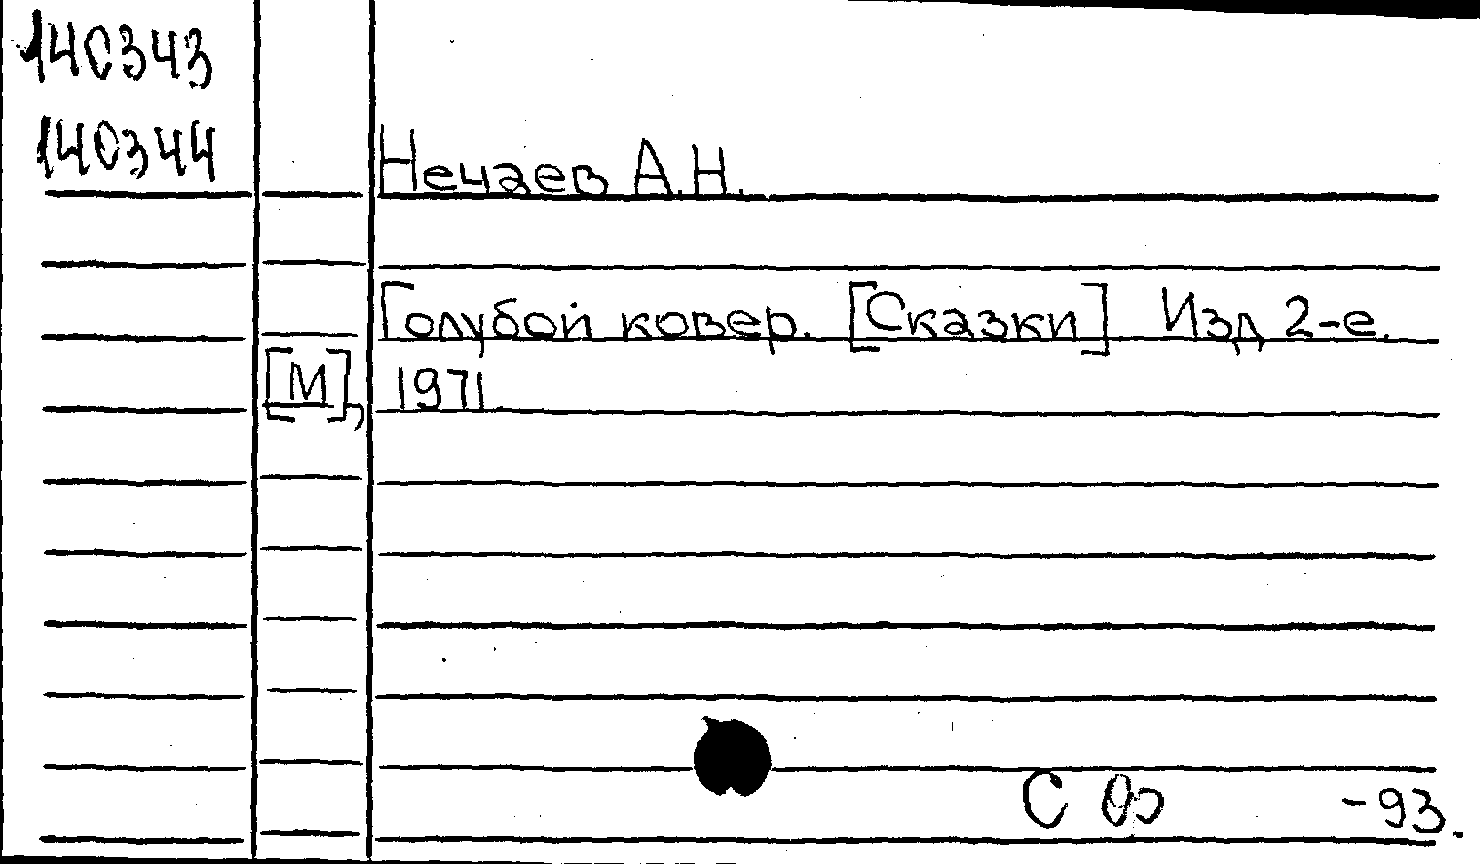 140343
140344
Нечаев А.Н.
Голубой ковер. [Сказки] Изд 2-е.
[М], 1971
С -93.